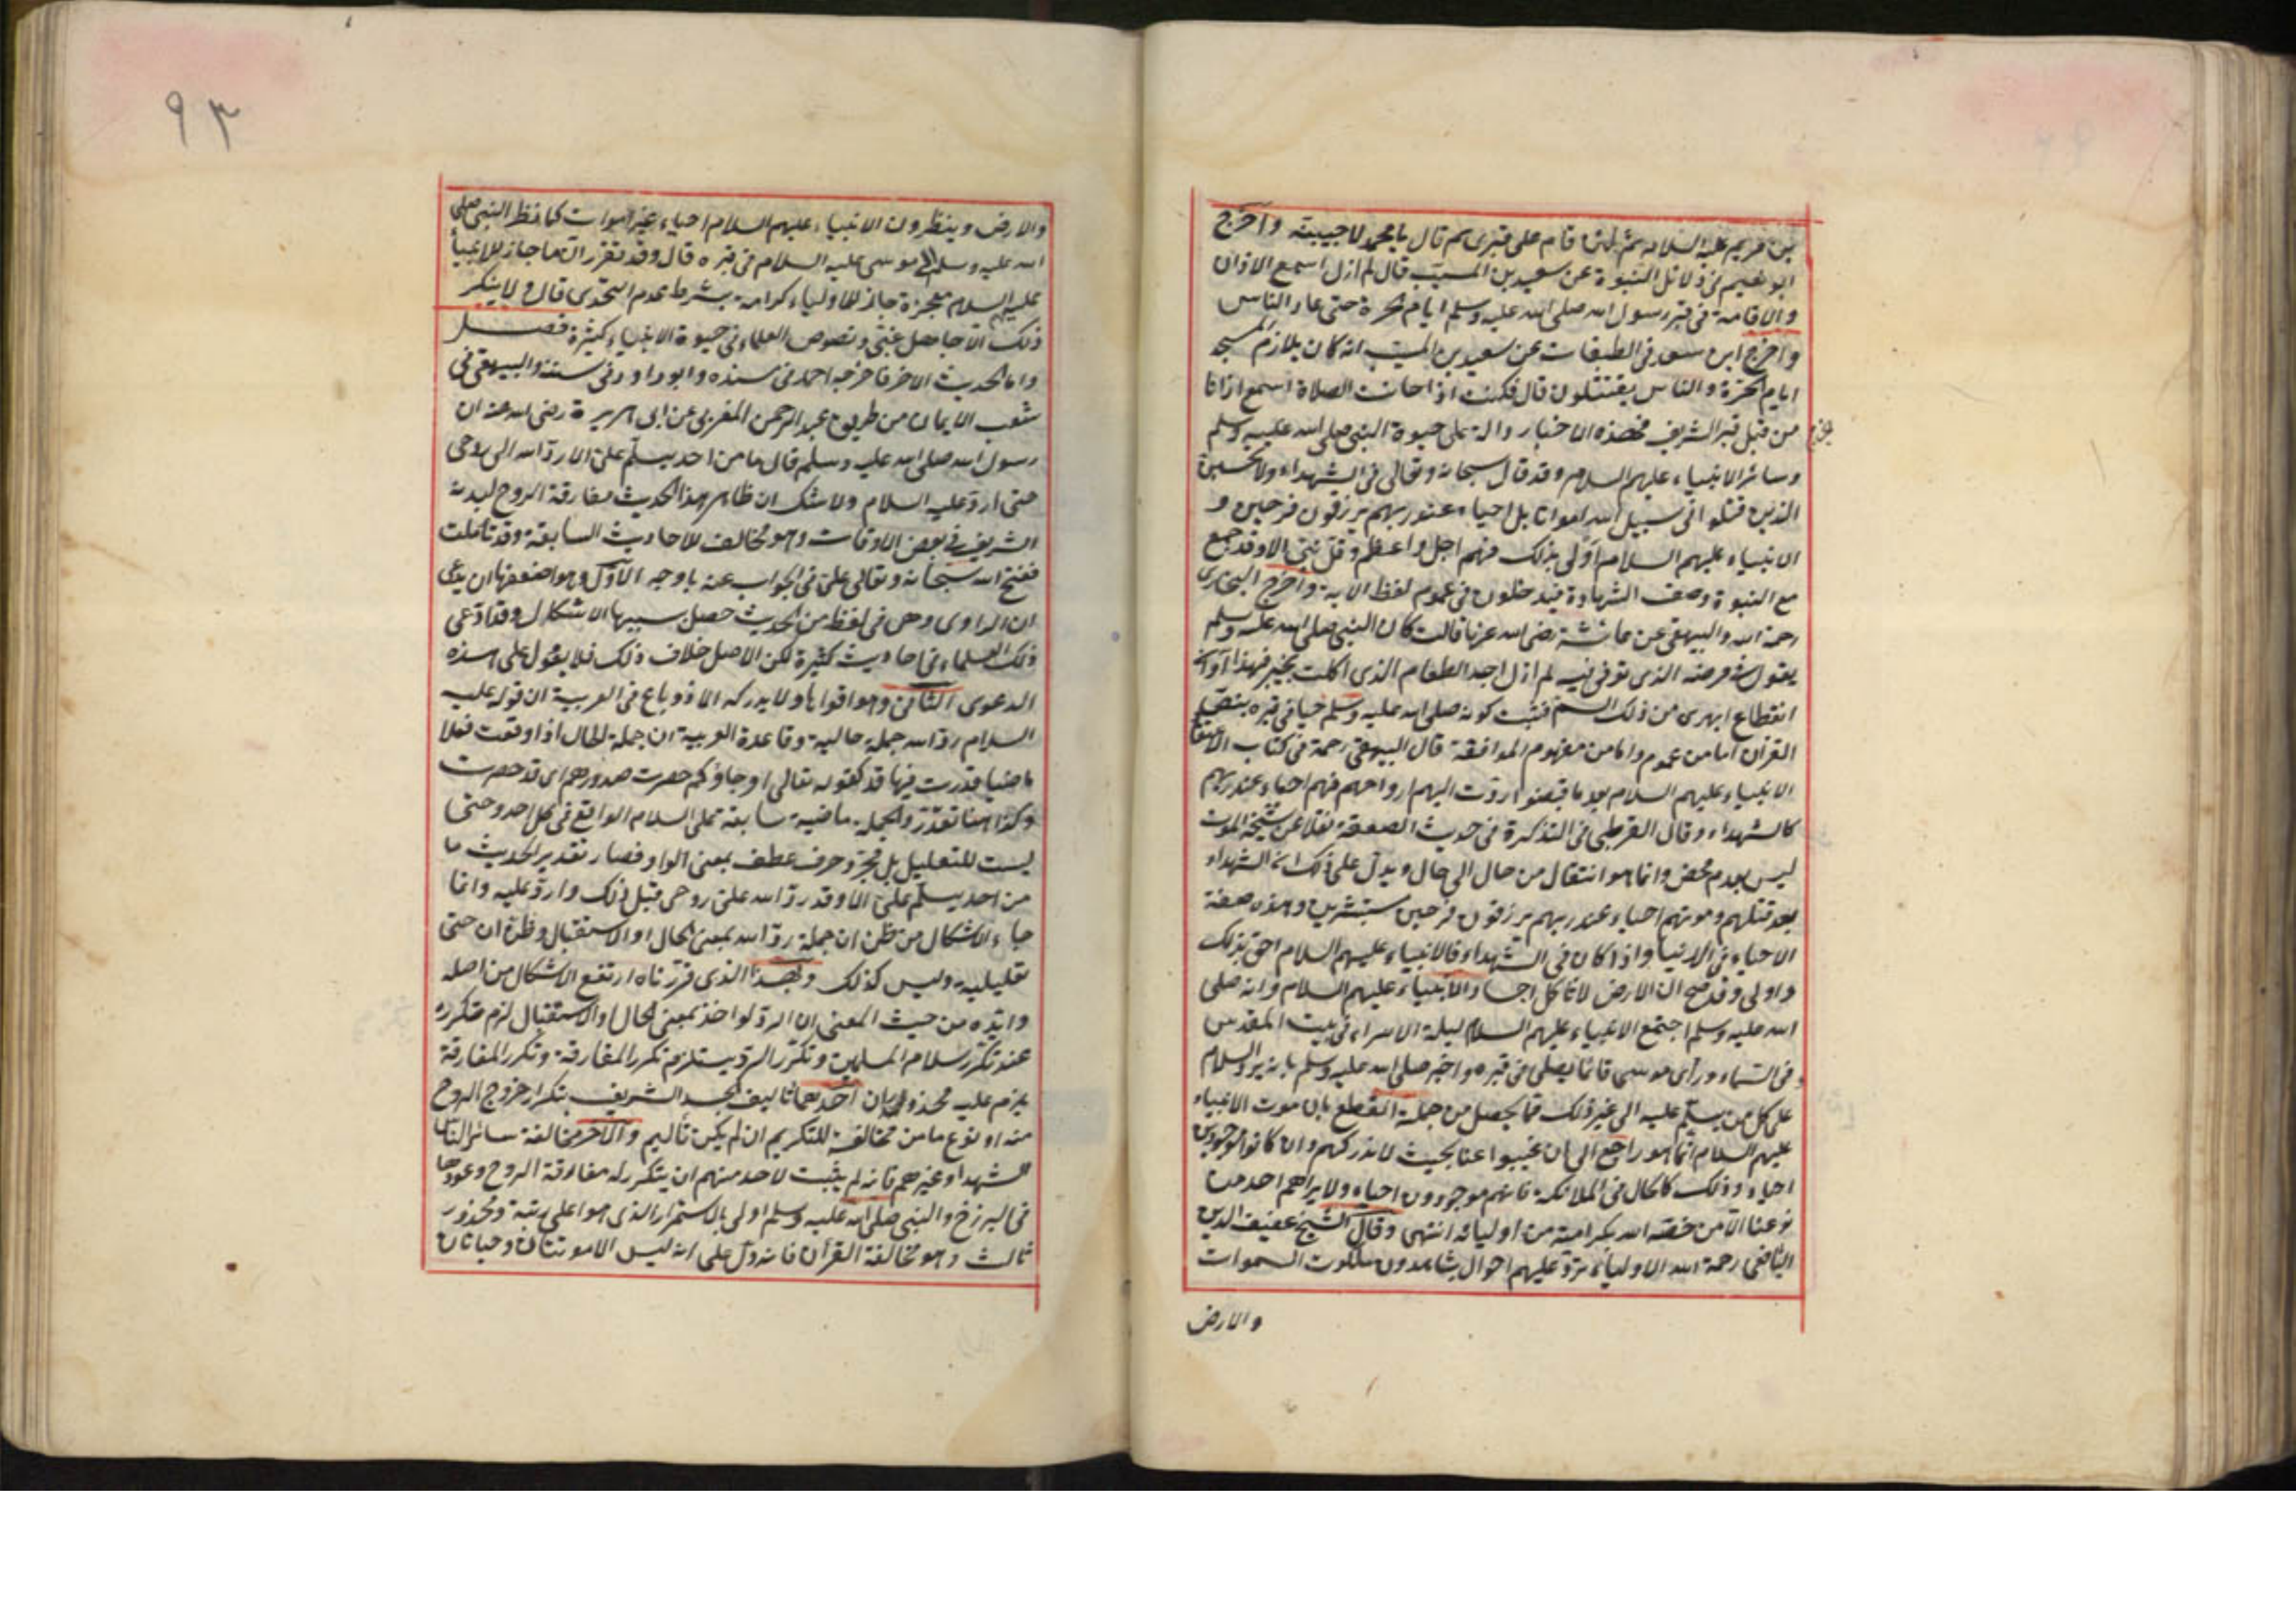 بن مريم عليه السلام ثم لئن قام على قبرى ثم قال يا محمد لاجيبنه واخرج
ابو نعيم فى دلائل النبوة عن سعيد بن المسيب قال لم ازل اسمع الاذان
والاقامة فى قبر رسول الله صلى الله عليه وسلم ايام الحرة حتى عاد الناس
واخرج ابن سعد فى الطبقات عن سعيد بن المسيب انه كان يلازم المسجد
ايام الحرة والناس يقتتلون قال فكنت اذا حانت الصلاة اسمع اذانا
من قبل قبر الشريف فهذه الاخبار دالة على حيوة النبى صلى الله عليه وسلم
وسائر الانبياء عليهم السلام وقد قال سبحانه وتعالى فى الشهداء ولا تحسبن
الذين قتلوا فى سبيل الله امواتا بل احياء عند ربهم يرزقون فرحين و
الانبياء عليهم السلام اولى بذلك فهم اجل واعظم وقل نبى الا وقد جمع
مع النبوة وصف الشهادة فيدخلون فى عموم لفظ الاية واخرج البخارى
رحمة الله والبيهقى عن عائشة رضى الله عنها قالت كان النبى صلى الله عليه وسلم
يقول فى مرضه الذى توفى فيه لم ازل اجد الطعام الذى اكلت بخيبر فهذا اوان
انقطاع ابهرى من ذلك السم فثبت كونه صلى الله عليه وسلم حيا فى قبره بنص
القرآن اما من عموم واما من مفهوم الموافقة قال البيهقى رحمة فى كتاب الاعتقاد
الانبياء عليهم السلام بعد ما قبضوا ردت اليهم ارواحهم فهم احياء عند ربهم
كالشهداء وقال القرطبى فى التذكرة فى حديث الصعقة نقلا عن شيخه الموت
ليس بعدم محض وانما هو انتقال من حال الى حال ويدل على ذلك ان الشهداء
بعد قتلهم وموتهم احياء عند ربهم يرزقون فرحين مستبشرين وهذه صفة
الاحياء فى الدنيا واذا كان فى الشهداء فالانبياء عليهم السلام احق بذلك
واولى وقد صح ان الارض لا تاكل اجساد الانبياء عليهم السلام وانه صلى
الله عليه وسلم اجتمع الانبياء عليهم السلام ليلة الاسراء فى بيت المقدس
وفى السماء ورأى موسى قائما يصلى فى قبره واخبر صلى الله عليه وسلم بانه يرد السلام
على كل من يسلم عليه الى غير ذلك مما يحصل من جملة القطع بان موت الانبياء
عليهم السلام انما هو راجع الى ان غيبوا عنا بحيث لا ندركهم وان كانوا موجودين
احياء وذلك كالحال فى الملائكة فانهم موجودون احياء ولا يراهم احد من
نوعنا الا من خصه الله بكرامته من اوليائه انتهى وقال الشيخ عفيف الدين
اليافعى رحمة الله الاولياء ترد عليهم احوال يشاهدون ملكوت السموات
والارض
٩٣
والارض وينظرون الانبياء عليهم السلام احياء غير اموات كما نظر النبى صلى
الله عليه وسلم الى موسى عليه السلام فى قبره قال وقد تقرر ان ما جاز للانبيا
عليهم السلام معجزة جاز للاولياء كرامة بشرط عدم التحدى قال ولا ينكر
ذلك الا جاهل ونصوص العلماء فى حيوة الانبياء كثيرة فصل
واما الحديث الاخر فاخرجه احمد فى مسنده وابو داود فى سننه والبيهقى فى
شعب الايمان من طريق عبد الرحمن المقرى عن ابى هريرة رضى الله عنه ان
رسول الله صلى الله عليه وسلم قال ما من احد يسلم على الا رد الله الى روحى
حتى ارد عليه السلام ولا شك ان ظاهر هذا الحديث مفارقة الروح لبدنه
الشريف فى بعض الاوقات وهو مخالف للاحاديث السابقة وقد تاملت
ففتح الله سبحانه وتعالى على فى الجواب عنه باوجه الاول وهو اضعفها ان يدعى
ان الراوى وهم فى لفظ من الحديث حصل بسببها الاشكال وقد ادعى
ذلك العلماء فى احاديث كثيرة لكن الاصل خلاف ذلك فلا يعول على هذه
الدعوى الثانى وهو اقواها ولا يدركه الا ذو باع فى العربية ان قوله عليه
السلام رد الله جملة حالية وقاعدة العربية ان جملة الحال اذا وقعت فعلا
ماضيا قدرت فيها قد كقوله تعالى او جاؤكم حصرت صدورهم اى قد حصرت
وكذا هنا تقدر والجملة ماضية سابقة على السلام الواقع فى كل احد وحتى
ليست للتعليل بل مجرد حرف عطف بمعنى الواو فصار تقدير الحديث ما
من احد يسلم على الا وقد رد الله على روحى قبل ذلك وارد عليه وانما
جاء الاشكال من ظن ان جملة رد الله بمعنى الحال او الاستقبال وظن ان حتى
تعليلية وليس كذلك وبهذا الذى قررناه ارتفع الاشكال من اصله
وايده من حيث المعنى ان الرد لو اخذ بمعنى الحال والاستقبال لزم تكرره
عند تكرر سلام المسلمين وتكرر الرد يستلزم تكرر المفارقة وتكرر المفارقة
يلزم عليه محذوران احدهما تاليف الجسد الشريف بتكرار خروج الروح
منه او نوع ما من مخالفة للتكريم ان لم يكن تأليم والآخر مخالفة سائر الناس
الشهداء وغيرهم فانه لم يثبت لاحد منهم ان يتكرر له مفارقة الروح وعودها
فى البرزخ والنبى صلى الله عليه وسلم اولى بالاستمرار الذى هو اعلى رتبة ومحذور
ثالث وهو مخالفة القرآن فانه دل على انه ليس الا موتتان وحياتان